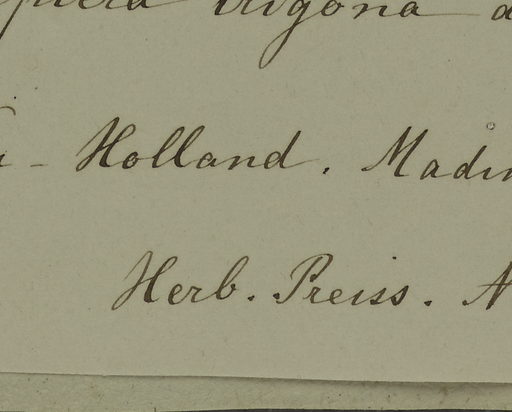 trigona
- Holland. Madin
Herb. Preiss. N